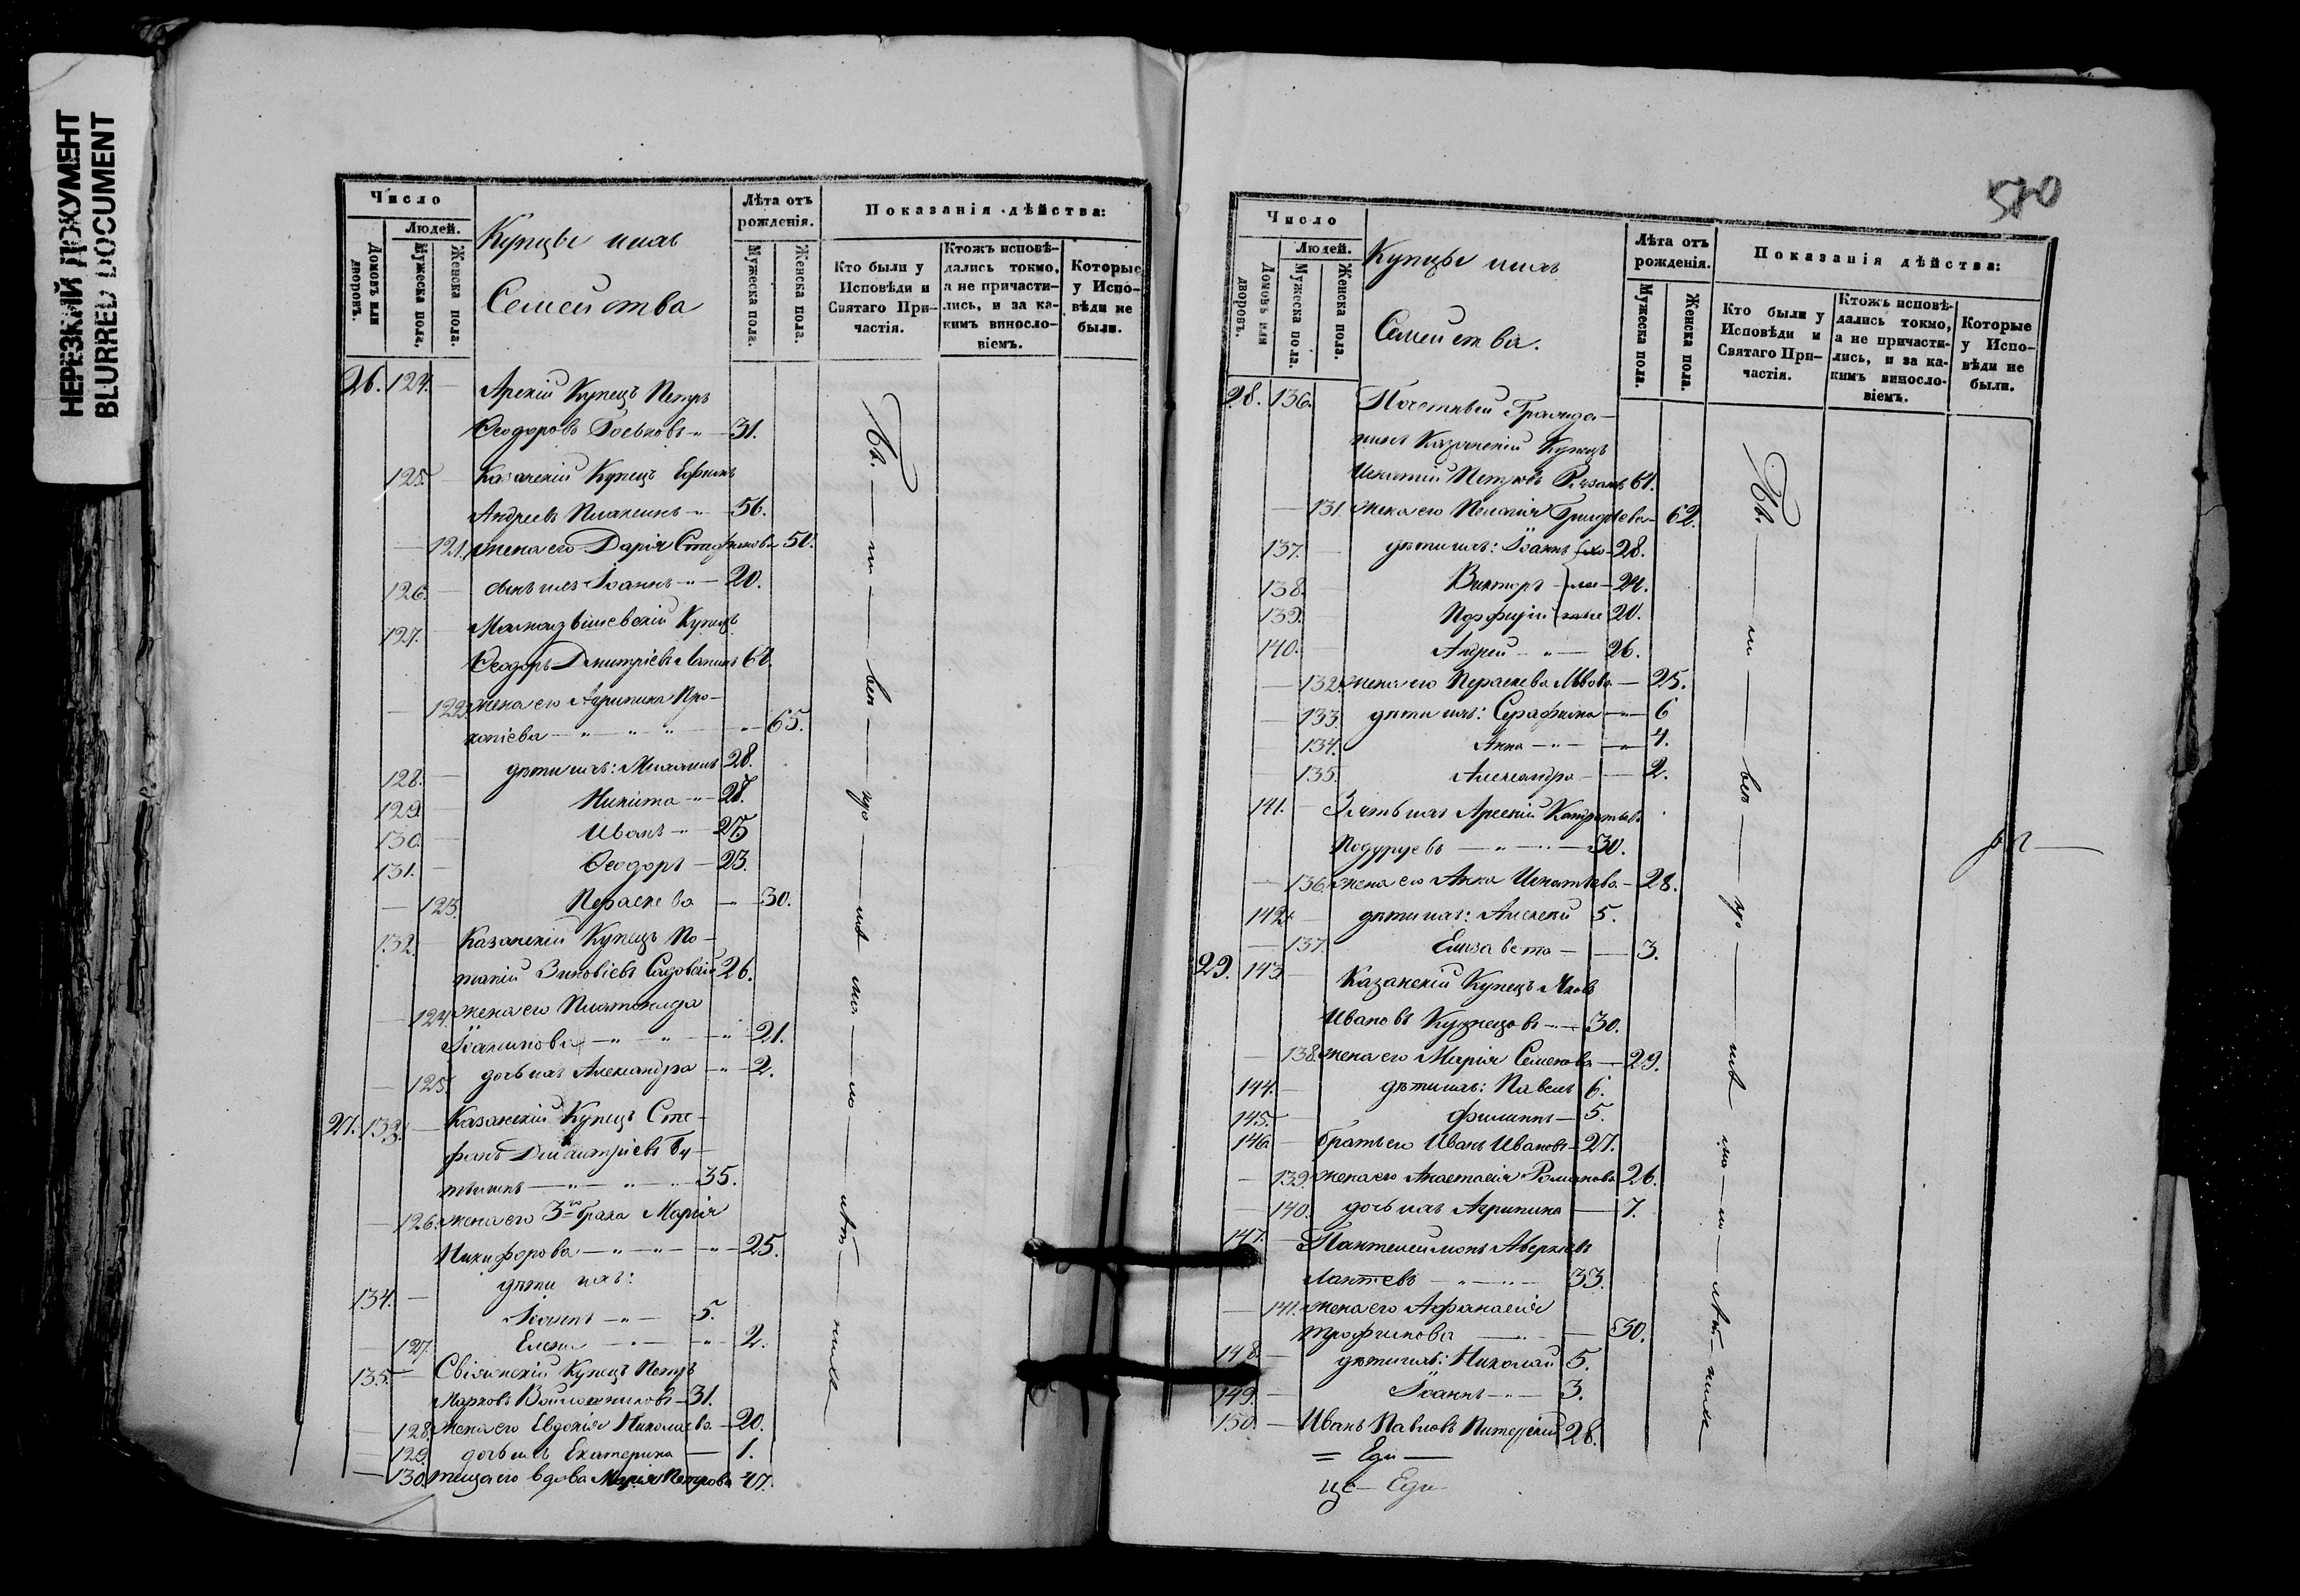 НЕРЕЗКИЙ ДОКУМЕНТ
BLURRED DOCUMENT
Число
Людей.
Домовъ или дворовъ.
Мужеска пола.
Женска пола.
Купцы и ихъ
Семейства
Лѣта отъ рожденія.
Мужеска пола.
Женска пола.
Показанія дѣйства:
Кто были у Исповѣди и Святаго Причастія.
Ктожъ исповѣдались токмо, а не причастились, и за какимъ винословіемъ.
Которые у Исповѣди не были.
26. 124. Арскій Купецъ Петръ
Ѳеодоровъ 31.
125. Казанскій Купецъ Ефимъ
Андреевъ 56.
121. жена его Дарія 50.
126. сынъ ихъ Іоаннъ 20.
127. Купецъ
Ѳеодоръ Димитріевъ
122. жена его Агрипина Про-
копіева 65.
128. дѣти ихъ: 28.
129. Никита 28.
130. Иванъ
131. Ѳеодоръ 23.
123. Параскева 30.
132. Казанскій Купецъ По-
тапій Зиновіевъ 26.
124. жена его Платонида
Іоаннова 21.
125. дочь ихъ Александра 2.
27. 133. Казанскій Купецъ Сте-
фанъ Димитріевъ
35.
126. жена его 3го брака Марія
Никифорова 25.
134. дѣти ихъ:
Іоаннъ 5.
127. Елена 2.
135. Свіяжскій Купецъ Петръ
Марковъ 31.
128. жена его Евдокія Николаева 20.
129. дочь ихъ Екатерина 1.
130. теща его вдова Марія Петрова 47.
580
Число
Людей.
Домовъ или дворовъ.
Мужеска пола.
Женска пола.
Купцы и ихъ
Семейства.
Лѣта отъ рожденія.
Мужеска пола.
Женска пола.
Показанія дѣйства:
Кто были у Исповѣди и Святаго Причастія.
Ктожъ исповѣдались токмо, а не причастились, и за какимъ винословіемъ.
Которые у Исповѣди не были.
28. 136. Почетный Гражда-
нинъ Казанскій Купецъ
Игнатій Петровъ 61.
131. жена его Пелагія Григорьева 62.
137. дѣти ихъ: Іоаннъ хо- 28.
138. Викторъ лос- 24.
139. Порфирій тые 20.
140. Андрей 26.
132. жена его Параскева Львова 25.
133. дѣти ихъ: Серафима 6
134. Анна 4.
135. Александра 2.
141. Зять ихъ Арсеній Кондратьевъ
Подуруевъ 30.
136. жена его Анна Игнатьева 28.
142. дѣти ихъ: Алексей 5.
137. Елизавета 3.
29. 143. Казанскій Купецъ Яковъ
Ивановъ Кузнецовъ 30.
138. жена его Марія Семенова 29.
144. дѣти ихъ: Павелъ 6.
145. Филиппъ 5.
146. братъ его Иванъ Ивановъ 27.
139. жена его Анастасія Романова 26.
140. дочь ихъ Агрипина 7.
147. Пантелеимонъ Аверкіевъ
Лаптевъ 33.
141. жена его Афанасія
Трофимова 30.
148. дѣти ихъ: Николай 5.
149. Іоаннъ 3.
150. Иванъ Павловъ Питерскій 28.